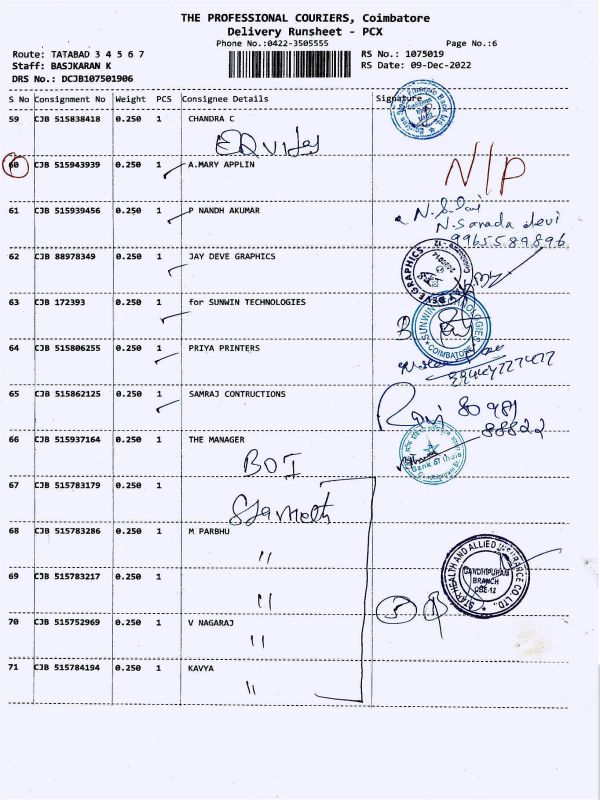 THE PROFESSIONAL COURIERS, Coimbatore
Delivery Runsheet - PCX
Phone No.:0422-3505555 Page No.:6
Route: TATABAD 3 4 5 6 7 RS No.: 1075019
Staff: BASJKARAN K RS Date: 09-Dec-2022
DRS No.: DCJB107501906
S No Consignment No Weight PCS Consignee Details Signature
59 CJB 515838418 0.250 1 CHANDRA C
60 CJB 515943939 0.250 1 A.MARY APPLIN N/P
61 CJB 515939456 0.250 1 P NANDH AKUMAR
N.Sarada devi
9965589896
62 CJB 88978349 0.250 1 JAY DEVE GRAPHICS
63 CJB 172393 0.250 1 for SUNWIN TECHNOLOGIES
SUNWIN TECHNOLOGIES
COIMBATORE
64 CJB 515806255 0.250 1 PRIYA PRINTERS
65 CJB 515862125 0.250 1 SAMRAJ CONTRUCTIONS
Ravi 80981
88822
66 CJB 515937164 0.250 1 THE MANAGER
BOI
Bank of India
67 CJB 515783179 0.250 1
68 CJB 515783286 0.250 1 M PARBHU
"
STAR HEALTH AND ALLIED INSURANCE CO. LTD.,
GANDHIPURAM
BRANCH
CBE-12
69 CJB 515783217 0.250 1
"
70 CJB 515752969 0.250 1 V NAGARAJ
"
71 CJB 515784194 0.250 1 KAVYA
"